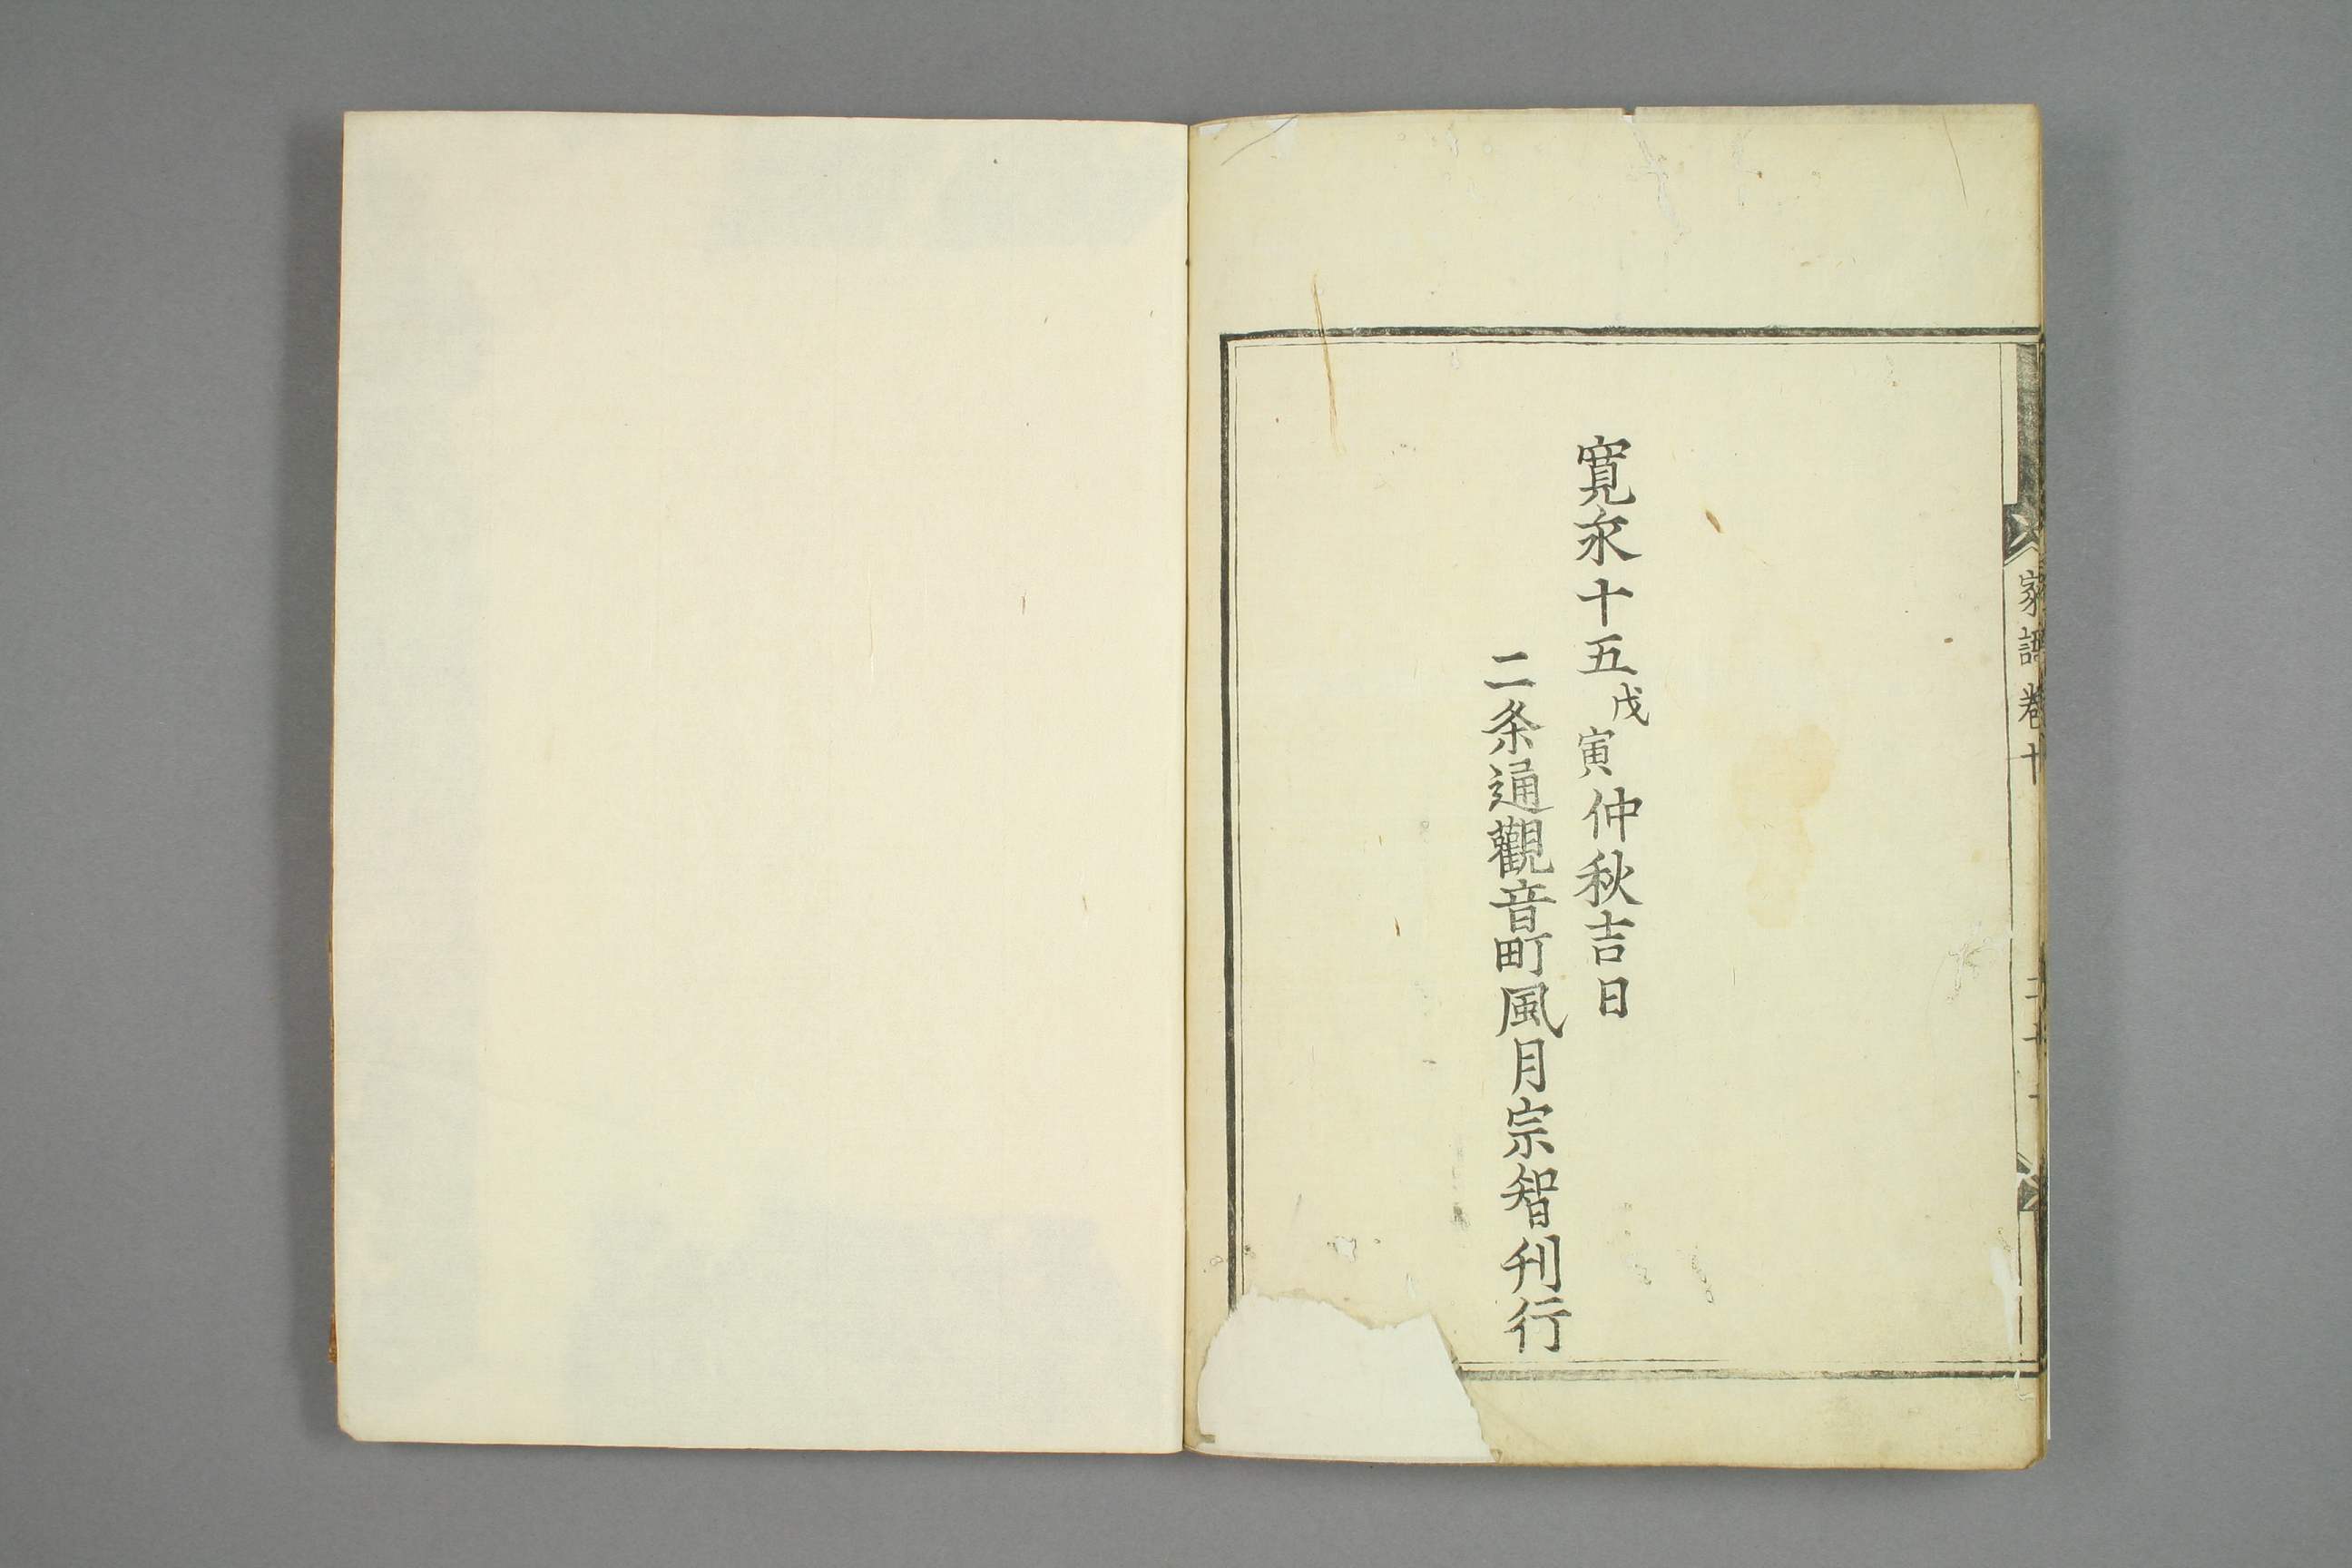 家語卷十
寛永十五戊寅仲秋吉日
二条通觀音町風月宗智刊行